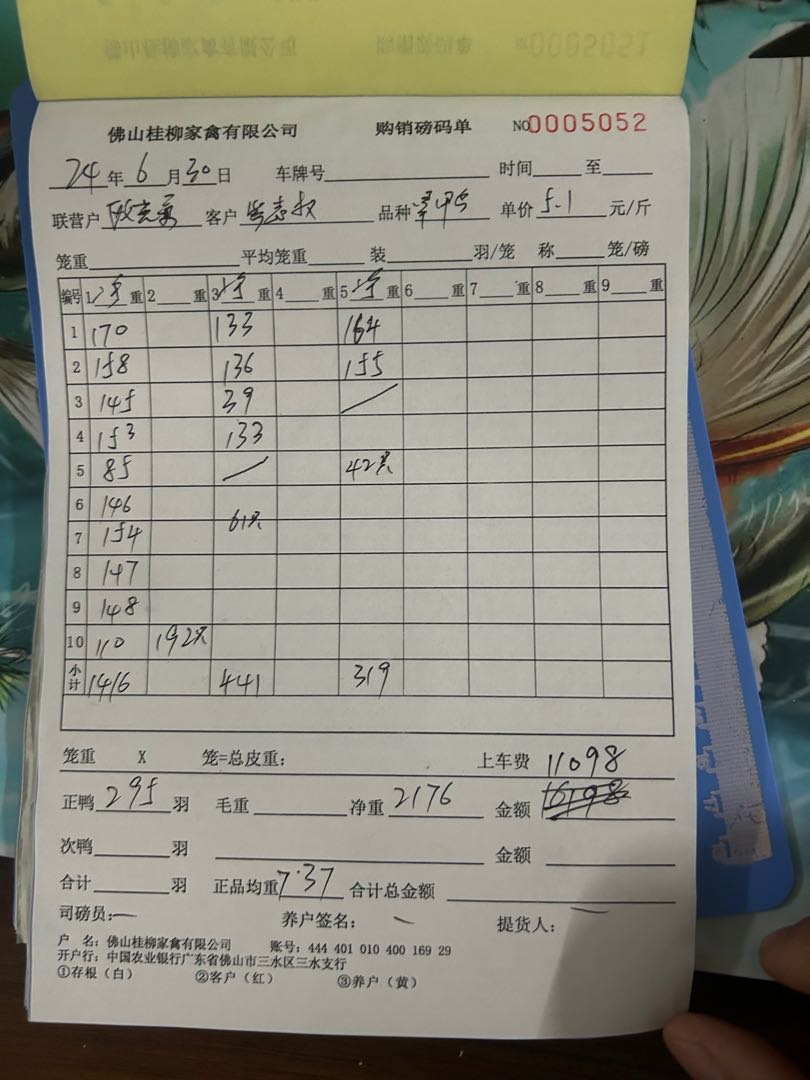 佛山桂柳家禽有限公司 购销磅码单 NO0005052
24年6月30日 车牌号 时间 至
联营户 客户 品种 单价5.1元/斤
笼重 平均笼重 装 羽/笼 称 笼/磅
编号 1 重 2 重 3 重 4 重 5 重 6 重 7 重 8 重 9 重
1 170 133 164
2 158 136 155
3 145 39
4 153 133
5 85 42只
6 146
61只
7 154
8 147
9 148
10 110 192只
小计 1416 441 319
笼重 X 笼=总皮重: 上车费 11098
正鸭295羽 毛重 净重2176 金额
次鸭 羽 金额
合计 羽 正品均重7.37 合计总金额
司磅员: 养户签名: 提货人:
户 名: 佛山桂柳家禽有限公司 账号: 444 401 010 400 169 29
开户行: 中国农业银行广东省佛山市三水区三水支行
①存根(白) ②客户(红) ③养户(黄)